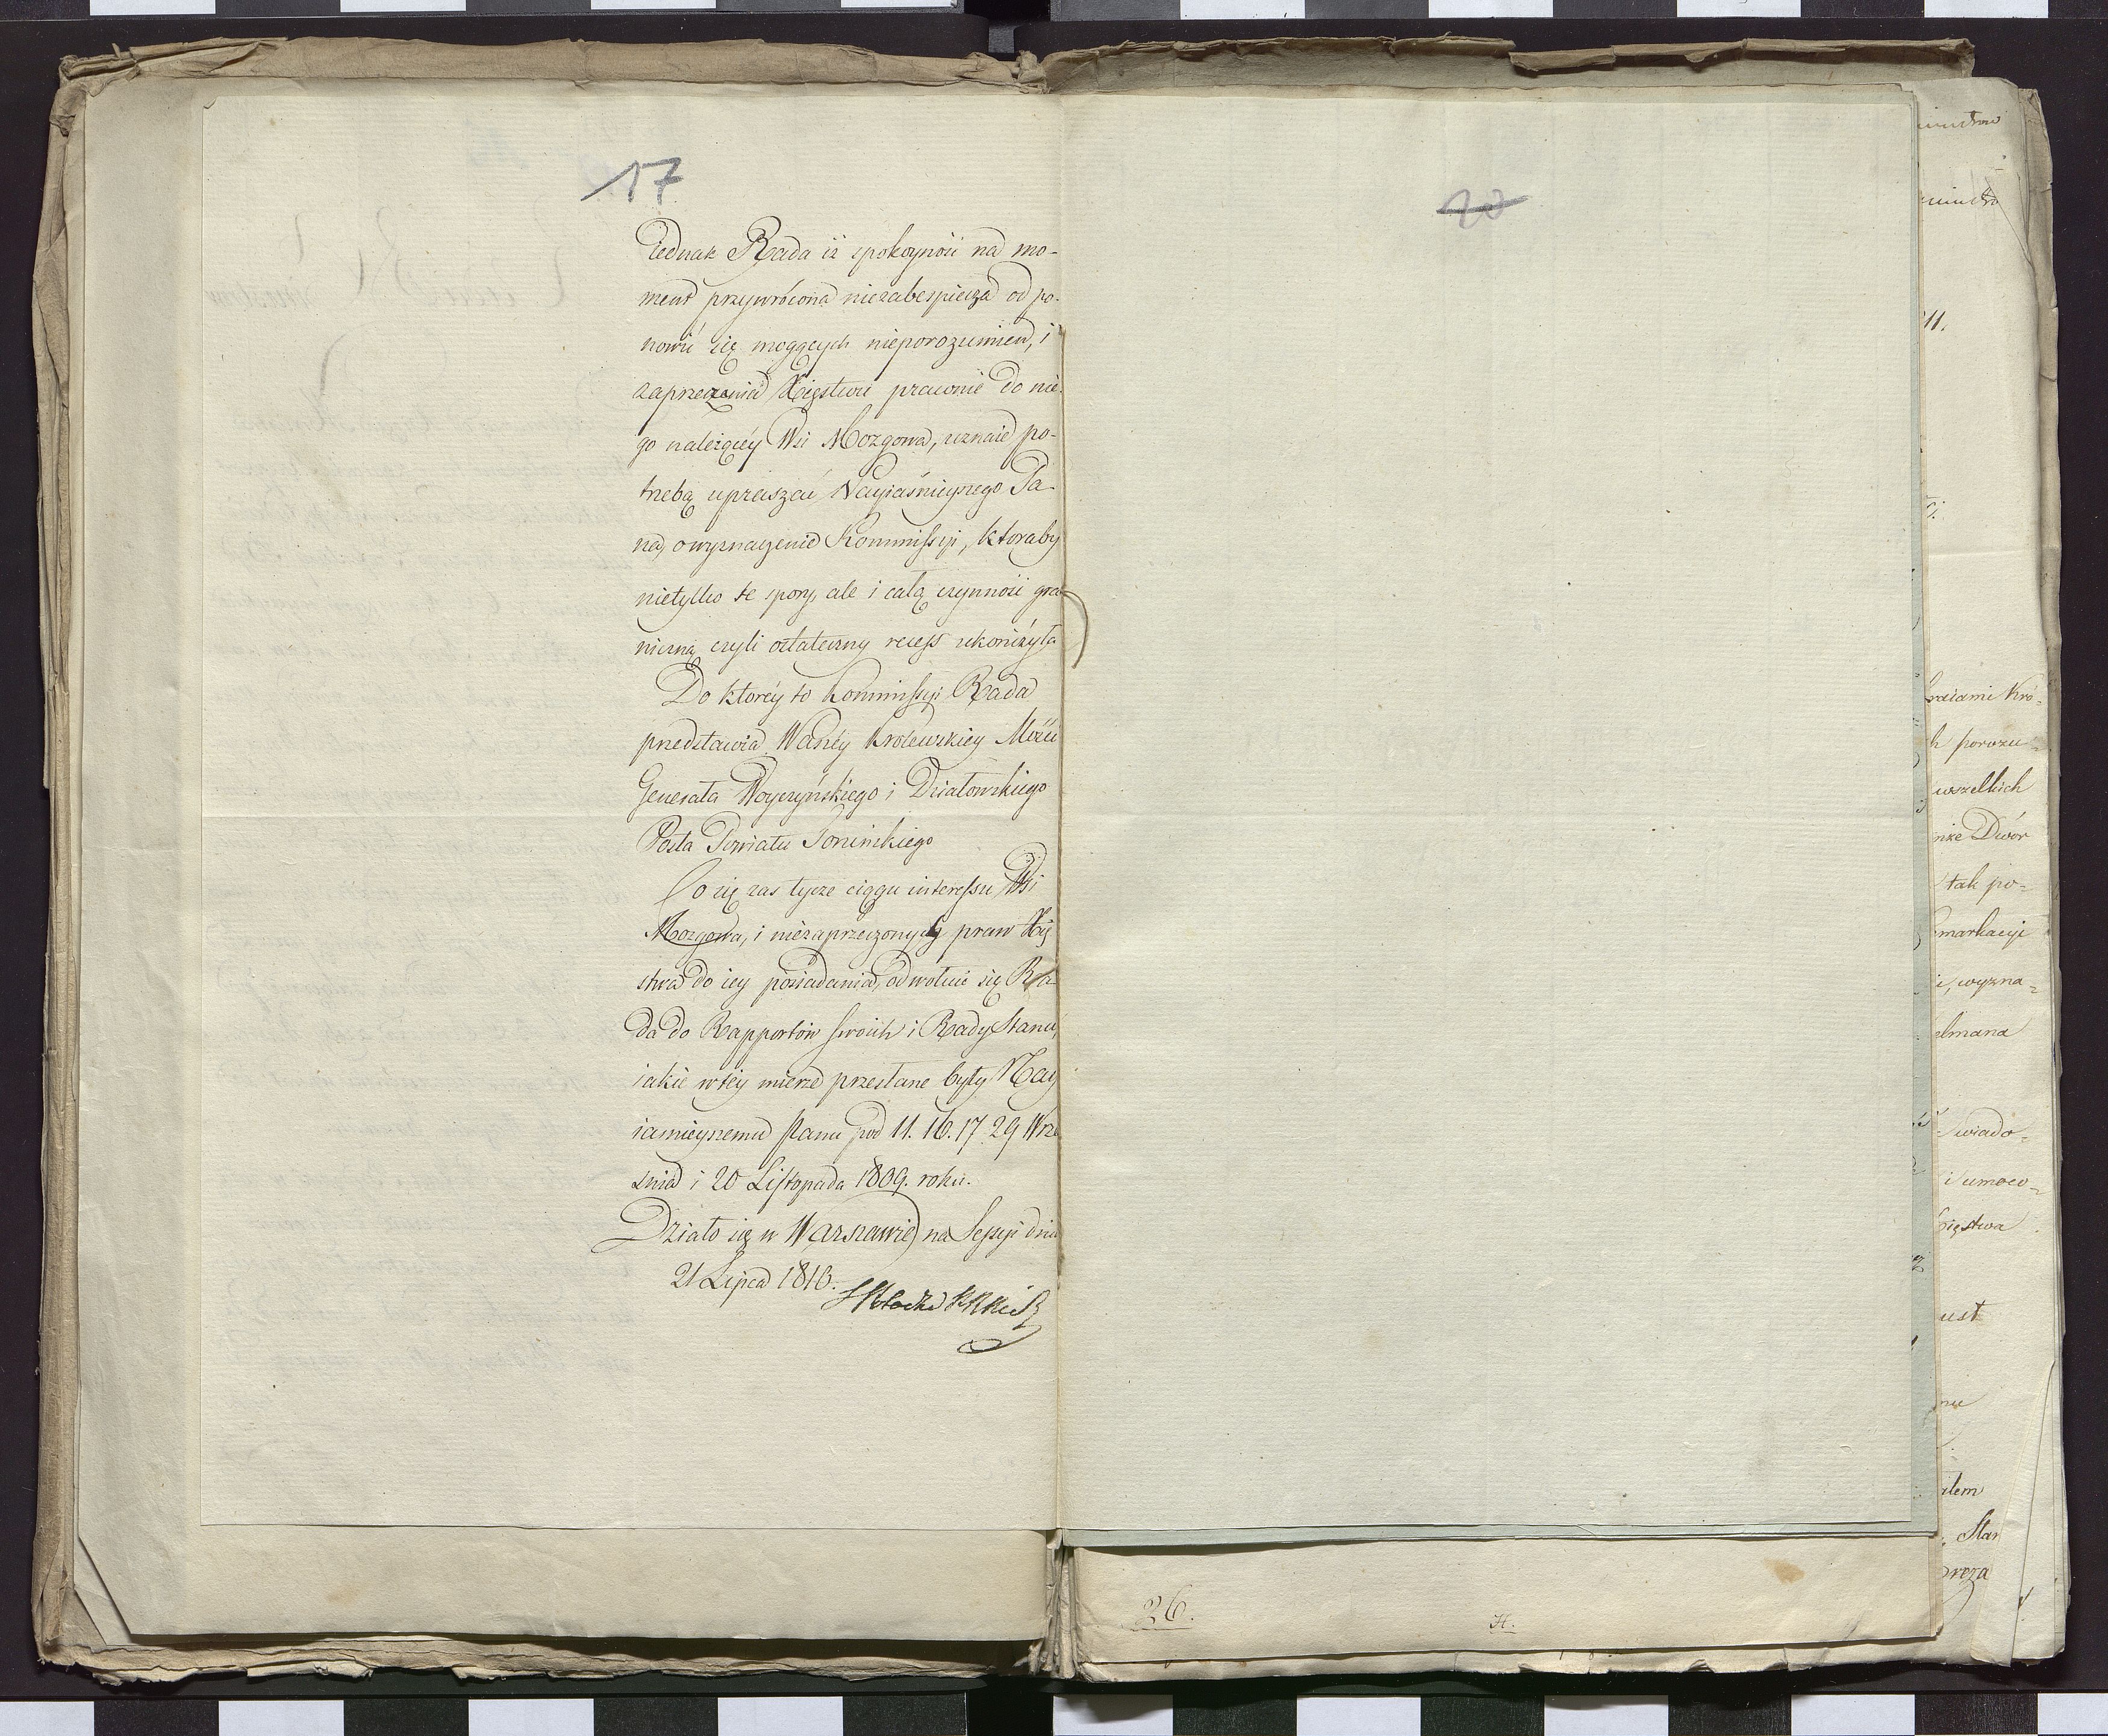 17
Iednak Rada iż spokoyność na mo-
ment przywrócona niezabespiecza od po-
nowić się mogących nieporozumień, i
zaprzeczenia Xięstwu prawnie do nie-
go należącey Wsi Mozgowa, uznaie po-
trzebą upraszać Nayiaśnieyszego Pa-
na, o wyznaczenie Kommissyi, ktoraby
nietylko te spory, ale i całą czynność gra-
niczną czyli ostateczny recess ukończyła
Do ktorey to Kommissyi Rada
przedstawia Waszey Krolewskiey Mości
Generała Woyczyńskiego i Działowskiego
Posła Powiatu
Co się zas tycze ciągu interessu Wsi
Mozgowa, i niezaprzeczonych praw Xię
stwa do iey posiadania, odwołuie się Ra-
da do Rapportów swoich i Rady Stanu,
iakie w tey mierze przesłane były Nay
iasnieyszemu Panu pod 11. 16. 17. 29 Wrze
snia i 20 Listopada 1809. roku.
Działo się w Warszawie na Sessyi dnia
21 Lipca 1810.
20
26.
H.
11.
raiami Kró-
h porozu-
wszelkich
nże Dwór
tak po-
markacyi
i, wyzna-
elmana
wiado-
i umoco-
ięstwa
ust
alem
Star